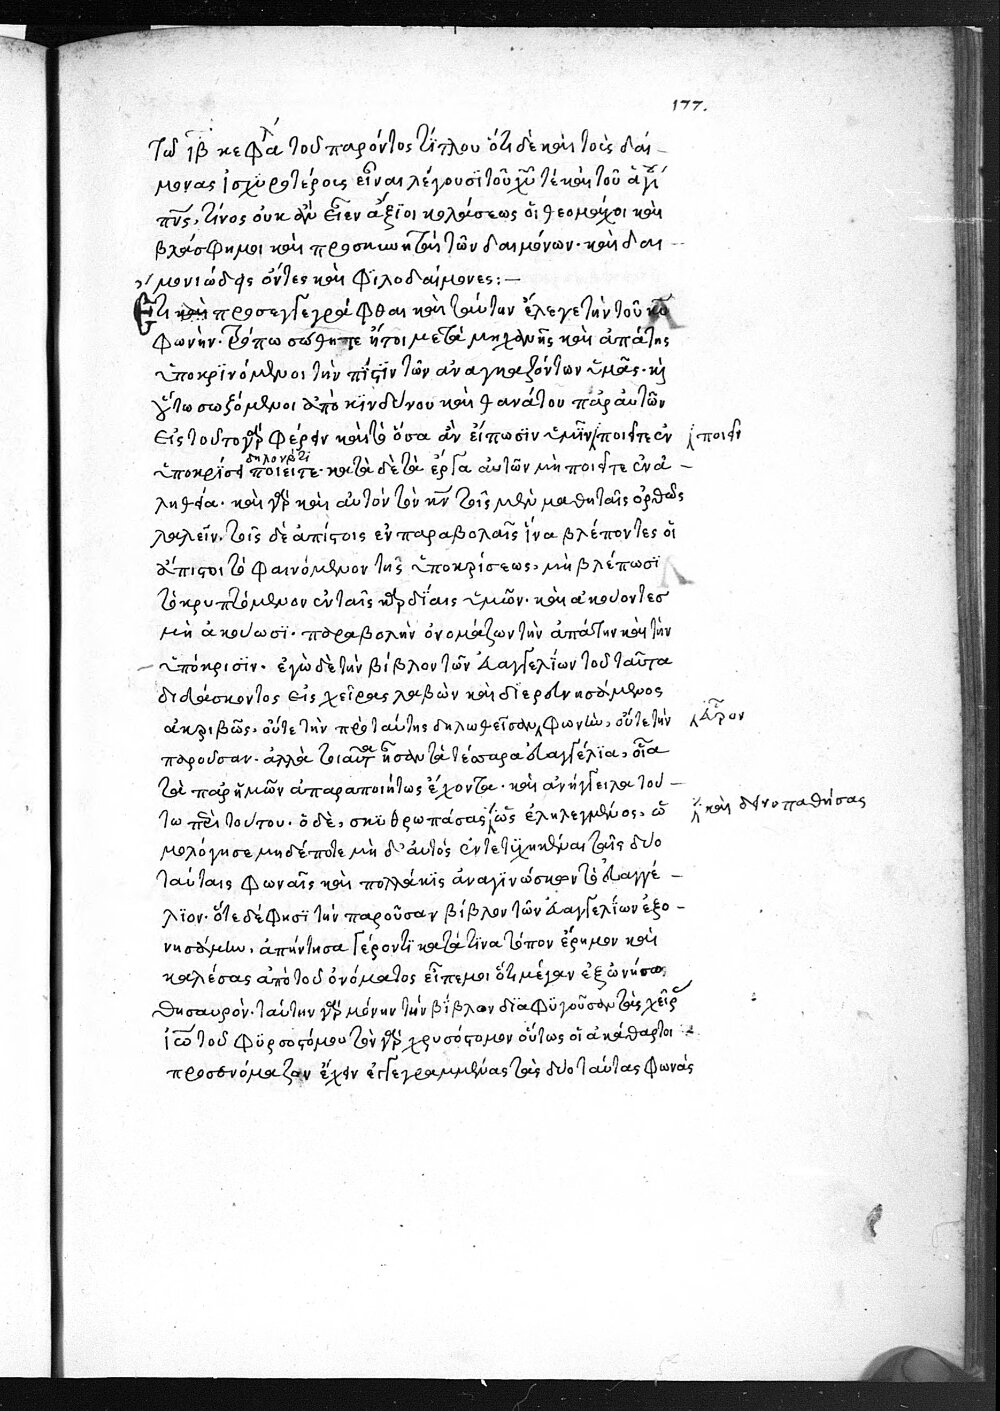 177.
τῶ ιβ κεφα τοῦ παρόντος τίτλου ὅτι δὲ καὶ τοὺς δαί-
μονας ἰσχυροτέρους εἶναι λέγουσι τοῦ χυ τὲ καὶ τοῦ ἁγί
πνς, τίνος οὐκ ἂν εἶεν ἄξιοι κολάσεως οἱ θεομάχοι καὶ
βλάσφημοι καὶ προσκυνηταὶ τῶν δαιμόνων· καὶ δαι-
μονιώδεις ὄντες καὶ φιλοδαίμονες:—
Ἔτι καὶ προσεγγεγράφθαι καὶ ταύτην ἔλεγε τὴν τοῦ κυ
φωνήν· τρόπω σώθητε ἤτοι μετὰ μηχανῆς καὶ ἀπάτης
ὑποκρινόμενοι τὴν πίστιν τῶν ἀναγκαζόντων ὑμᾶς· καὶ
οὕτω σωζόμενοι ἀπὸ κινδύνου καὶ θανάτου παρ αὐτῶν
εἰς τοῦτο γὰρ φέρειν καὶ τὸ ὅσα ἂν εἴπωσιν ὑμῖν ποιεῖτε ἐν ποιεῖν
δηλονότι
ὑποκρίσει ποιεῖτε· κατὰ δὲ τὰ ἔργα αὐτῶν μὴ ποιεῖτε ἐν ἀ-
ληθεία· καὶ γὰρ καὶ αὐτὸν τὸν κν τοῖς μὲν μαθηταῖς ὀρθῶς
λαλεῖν, τοῖς δὲ ἀπίστοις ἐν παραβολαῖς ἵνα βλέποντες οἱ
ἄπιστοι τὸ φαινόμενον τῆς ὑποκρίσεως, μὴ βλέπωσι
τὸ κρυπτόμενον ἐν ταῖς καρδίαις ὑμῶν· καὶ ἀκούοντες
μὴ ἀκούωσι· παραβολὴν ὀνομάζων τὴν ἀπάτην καὶ τὴν
ὑπόκρισιν· ἐγὼ δὲ τὴν βίβλον τῶν εὐαγγελίων τοῦ ταῦτα
διδάσκοντος εἰς χεῖρας λαβὼν καὶ διερευνησάμενος
ἀκριβῶς, οὔτε τὴν πρὸ ταύτης δηλωθεῖσαν φωνὴν, οὔτε τὴν εὗρον
παροῦσαν· ἀλλὰ τοιαῦτα ἦσαν τὰ τέσσαρα εὐαγγέλια, οἷα
τὰ παρ ἡμῶν ἀπαραποιήτως ἔχοντα· καὶ ἀνήγγειλα τού-
τω περὶ τούτου· ὁ δὲ, σκυθρωπάσας ὡς ἐληλεγμένος, ὡ καὶ δεινοπαθήσας
μολόγησε μηδέποτε μὴ δ' αὐτὸς ἐντετυχηκέναι ταῖς δυο
ταύταις φωναῖς καὶ πολλάκις ἀναγινώσκων τὸ εὐαγγέ-
λιον· ὅτε δέ φησι τὴν παροῦσαν βίβλον τῶν εὐαγγελίων ἐξο-
νησάμην, ἀπήντησα γέροντι κατά τινα τόπον ἔρημον καὶ
καλέσας ἀπὸ τοῦ ὀνόματος εἶπε μοι ὅτι μέγαν ἐξωνήσω
θησαυρὸν· ταύτην γὰρ μόνην τὴν βίβλον διαφυγοῦσαν τὰς χεῖρ
ιω τοῦ φυρσοστόμου τὸν γὰρ χρυσόστομον οὕτως οἱ ἀκάθαρτοι
προσονόμαζον ἔχειν ἐγγεγραμμένας τὰς δύο ταύτας φωνάς